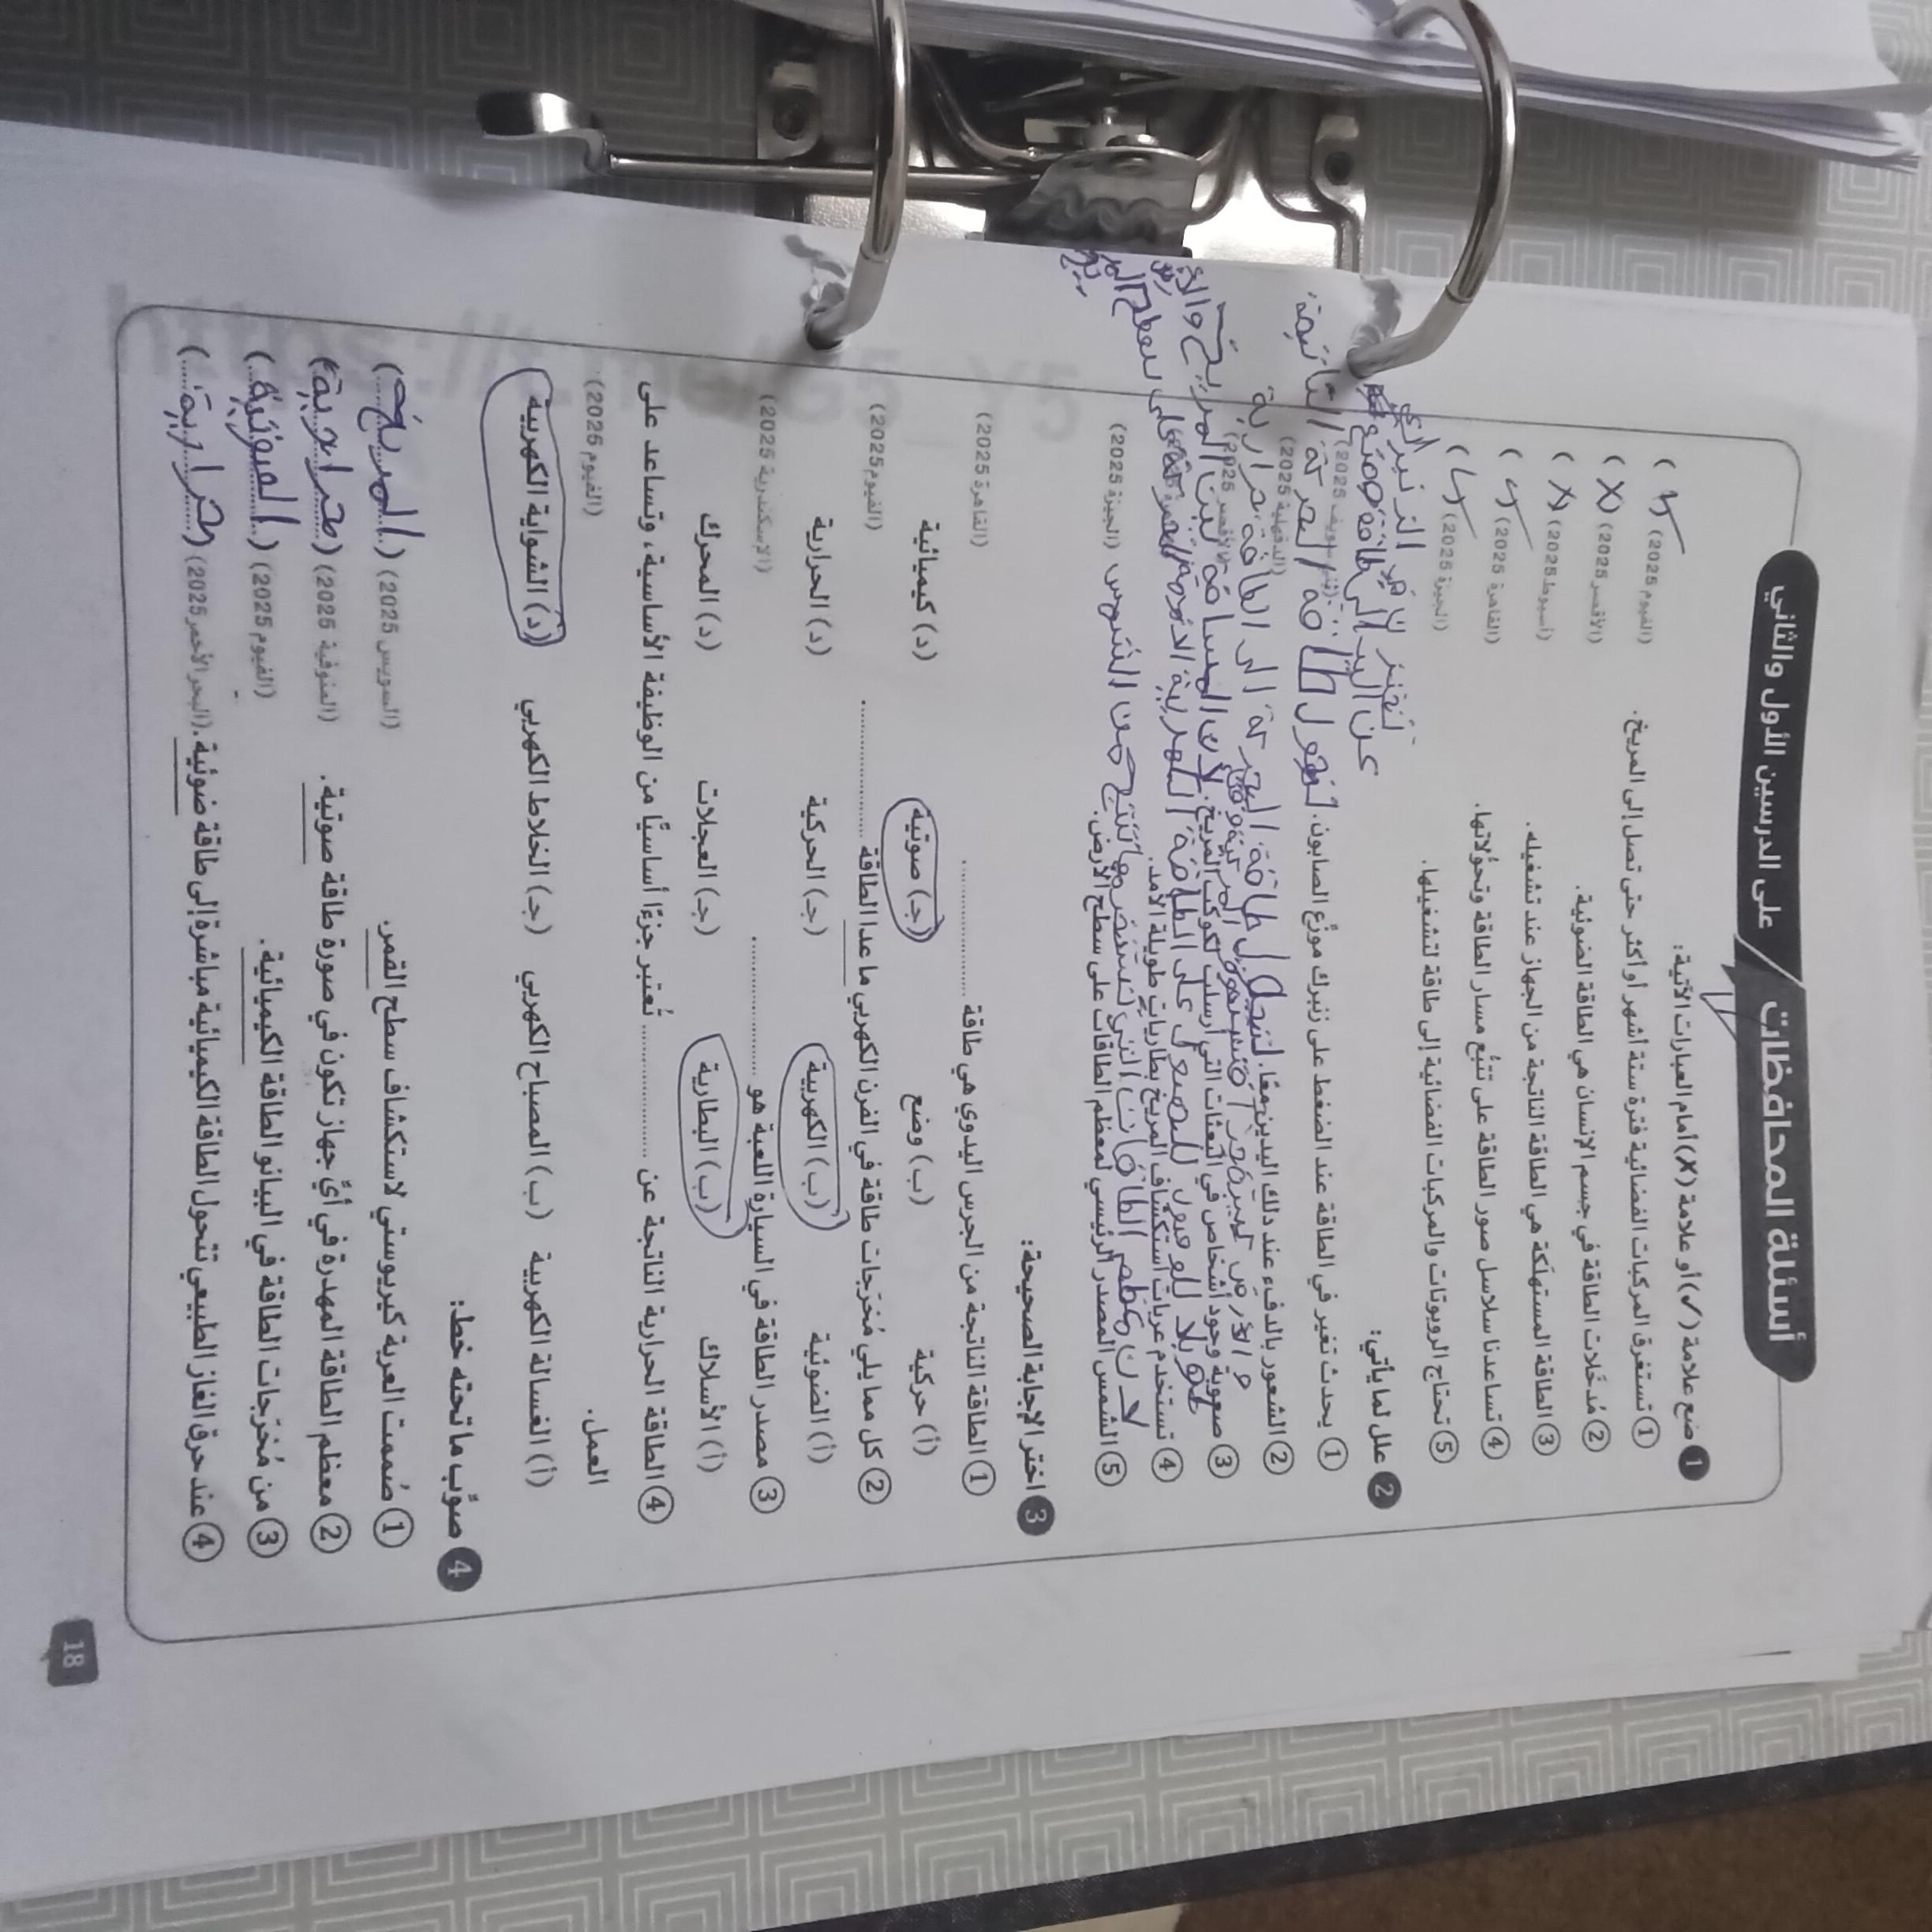 أسئلة المحافظات على الدرسين الأول والثاني
1 ضع علامة (✓) أو علامة (X) أمام العبارات الآتية:
① تستغرق المركبات الفضائية فترة ستة أشهر أو أكثر حتى تصل إلى المريخ. (الفيوم 2025) ( ✓ )
② مُدخَلات الطاقة في جسم الإنسان هي الطاقة الضوئية. (الأقصر 2025) ( X )
③ الطاقة المستهلَكة هي الطاقة الناتجة من الجهاز عند تشغيله. (أسيوط 2025) ( X )
④ تساعدنا سلاسل صور الطاقة على تتبُّع مسار الطاقة وتحوُّلاتها. (القاهرة 2025) ( ✓ )
⑤ تحتاج الروبوتات والمركبات الفضائية إلى طاقة لتشغيلها. (الجيزة 2025) ( ✓ )
2 علل لما يأتي:
① يحدث تغير في الطاقة عند الضغط على زنبرك موزِّع الصابون. (بني سويف 2025)
لتحول طاقة الحركة الناتجة
عن اليد إلى طاقة وضع
تختزن في الزنبرك
② الشعور بالدفء عند دلك اليدين معًا. (الدقهلية 2025)
طاقة الحركة الى الطاقة حرارية
③ صعوبة وجود أشخاص في البعثات التي أرسلت لكوكب المريخ. (الأقصر 2025)
لأن المسافة بين المريخ
و الأرض
④ تستخدم عربات استكشاف المريخ بطاريات طويلة الأمد.
للحصول على الطاقة الكهربية
على سطح
⑤ الشمس المصدر الرئيسي لمعظم الطاقات على سطح الأرض. (الجيزة 2025)
لان معظم الطاقات التي نستخدمها تنتج من الشمس
3 اختر الإجابة الصحيحة:
① الطاقة الناتجة من الجرس اليدوي هي طاقة .................. (القاهرة 2025)
(أ) حركية (ب) وضع (جـ) صوتية (د) كيميائية
② كل مما يلي مُخرَجات طاقة في الفرن الكهربي ما عدا الطاقة .................. (الفيوم 2025)
(أ) الضوئية (ب) الكهربية (جـ) الحركية (د) الحرارية
③ مصدر الطاقة في السيارة اللعبة هو .................. (الإسكندرية 2025)
(أ) الأسلاك (ب) البطارية (جـ) العجلات (د) المحرك
④ الطاقة الحرارية الناتجة عن .................. تُعتبر جزءًا أساسيًّا من الوظيفة الأساسية، وتساعد على
العمل. (الفيوم 2025)
(أ) الغسالة الكهربية (ب) المصباح الكهربي (جـ) الخلاط الكهربي (د) الشواية الكهربية
4 صوِّب ما تحته خط:
① صُممت العربة كيريوستي لاستكشاف سطح القمر. (السويس 2025) (المريخ)
② معظم الطاقة المهدرة في أيِّ جهاز تكون في صورة طاقة صوتية. (المنوفية 2025) (حرارية)
③ من مُخرَجات الطاقة في البيانو الطاقة الكيميائية. (الفيوم 2025) (الصوتية)
④ عند حرق الغاز الطبيعي تتحول الطاقة الكيميائية مباشرة إلى طاقة ضوئية. (البحر الأحمر 2025) (حرارية)
18